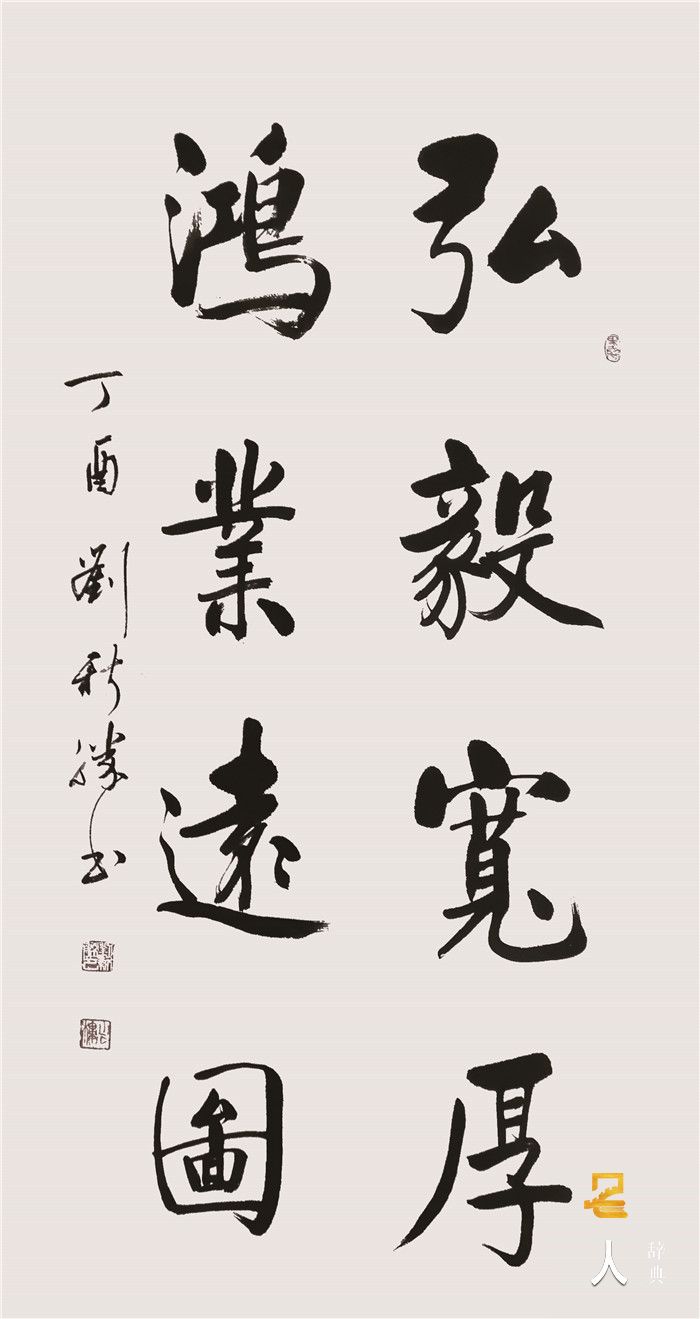 弘毅寬厚
鴻業遠圖
丁酉劉秋勝书
名人
辞典